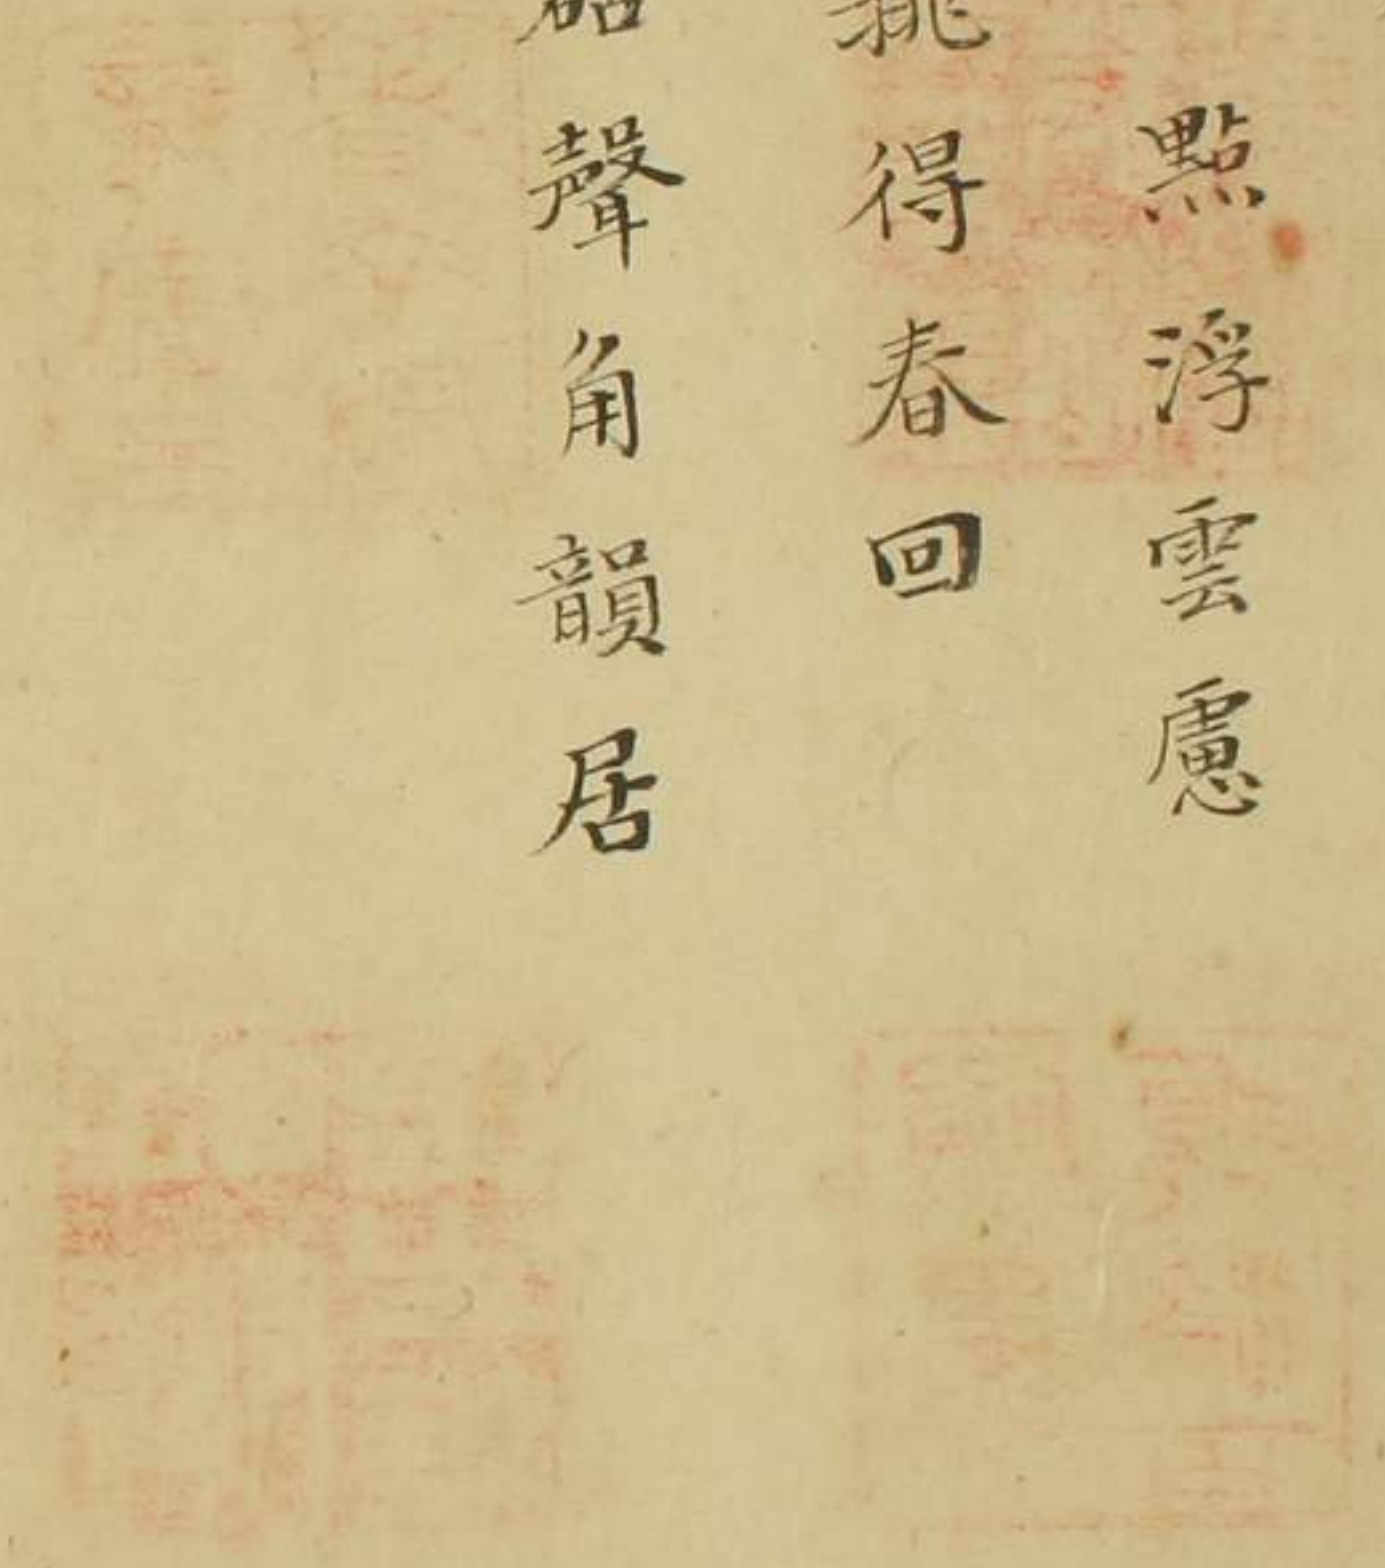 點浮雲慮
得春回
聲角韻居